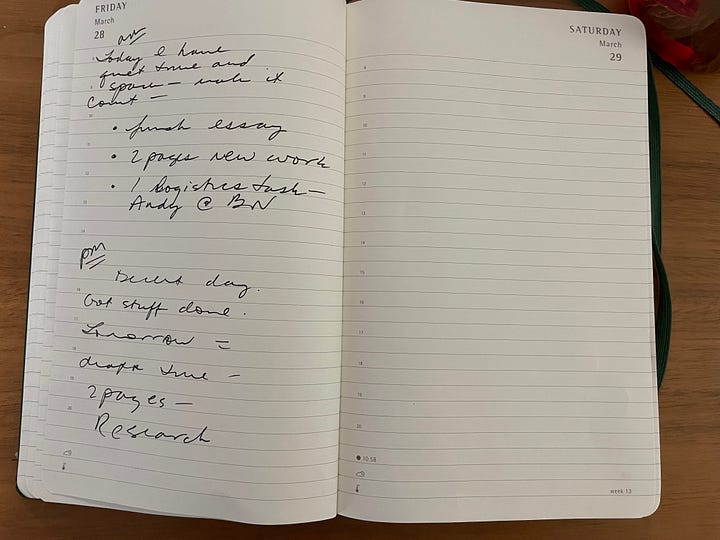 FRIDAY
March
28
am
Today I have
quiet time and
space — make it
count —
• finish essay
• 2 pages new work
• 1 logistics task —
Andy @ BN
pm
Decent day.
Got stuff done.
Tomorrow =
draft time —
2 pages —
Research
SATURDAY
March
29
8
9
10
11
12
13
14
15
16
17
18
19
20
10:58
week 13